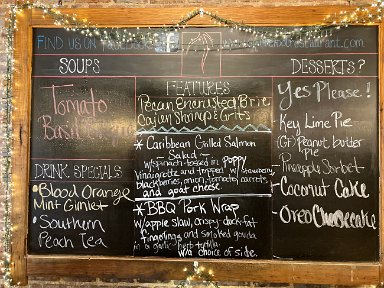 FIND US ON facebook
restaurant.com
SOUPS
Tomato
Basil
DRINK SPECIALS
Blood Orange
Mint Gimlet
Southern
Peach Tea
FEATURES
Pecan Encrusted Brie
Cajun Shrimp & Grits
* Caribbean Grilled Salmon
Salad -
w/spinach tossed in poppy
vinaigrette and topped w/strawberry,
blackberries, mixed tomatoes, carrots,
and goat cheese
* BBQ Pork Wrap
w/apple slaw, crispy duck-fat
fingerlings and smoked gouda
in a garlic-herb tortilla.
w/a choice of side.
DESSERTS?
Yes Please!
- Key Lime Pie
(GF) Peanut butter
Pie
- Pineapple Sorbet
- Coconut Cake
- Oreo Cheesecake